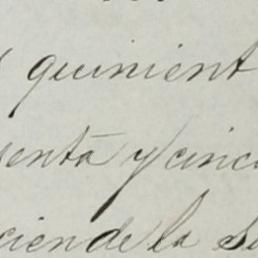 quinient
senta y cinc
ciende la su